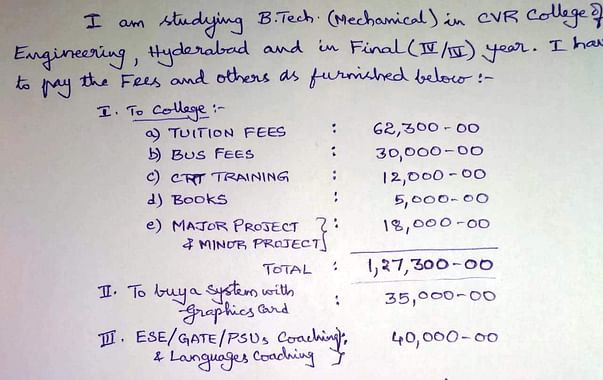 I am studying B.Tech. (Mechanical) in CVR College of
Engineering, Hyderabad and in Final (IV/IV) year. I hav
to pay the Fees and others as furnished below :-
I. To College :-
a) TUITION FEES : 62,300-00
b) BUS FEES : 30,000-00
c) CRT TRAINING : 12,000-00
d) BOOKS : 5,000-00
e) MAJOR PROJECT } : 18,000-00
& MINOR PROJECT
TOTAL : 1,27,300-00
II. To buy a system with
Graphics Card : 35,000-00
III. ESE/GATE/PSUs Coaching } : 40,000-00
& Languages Coaching